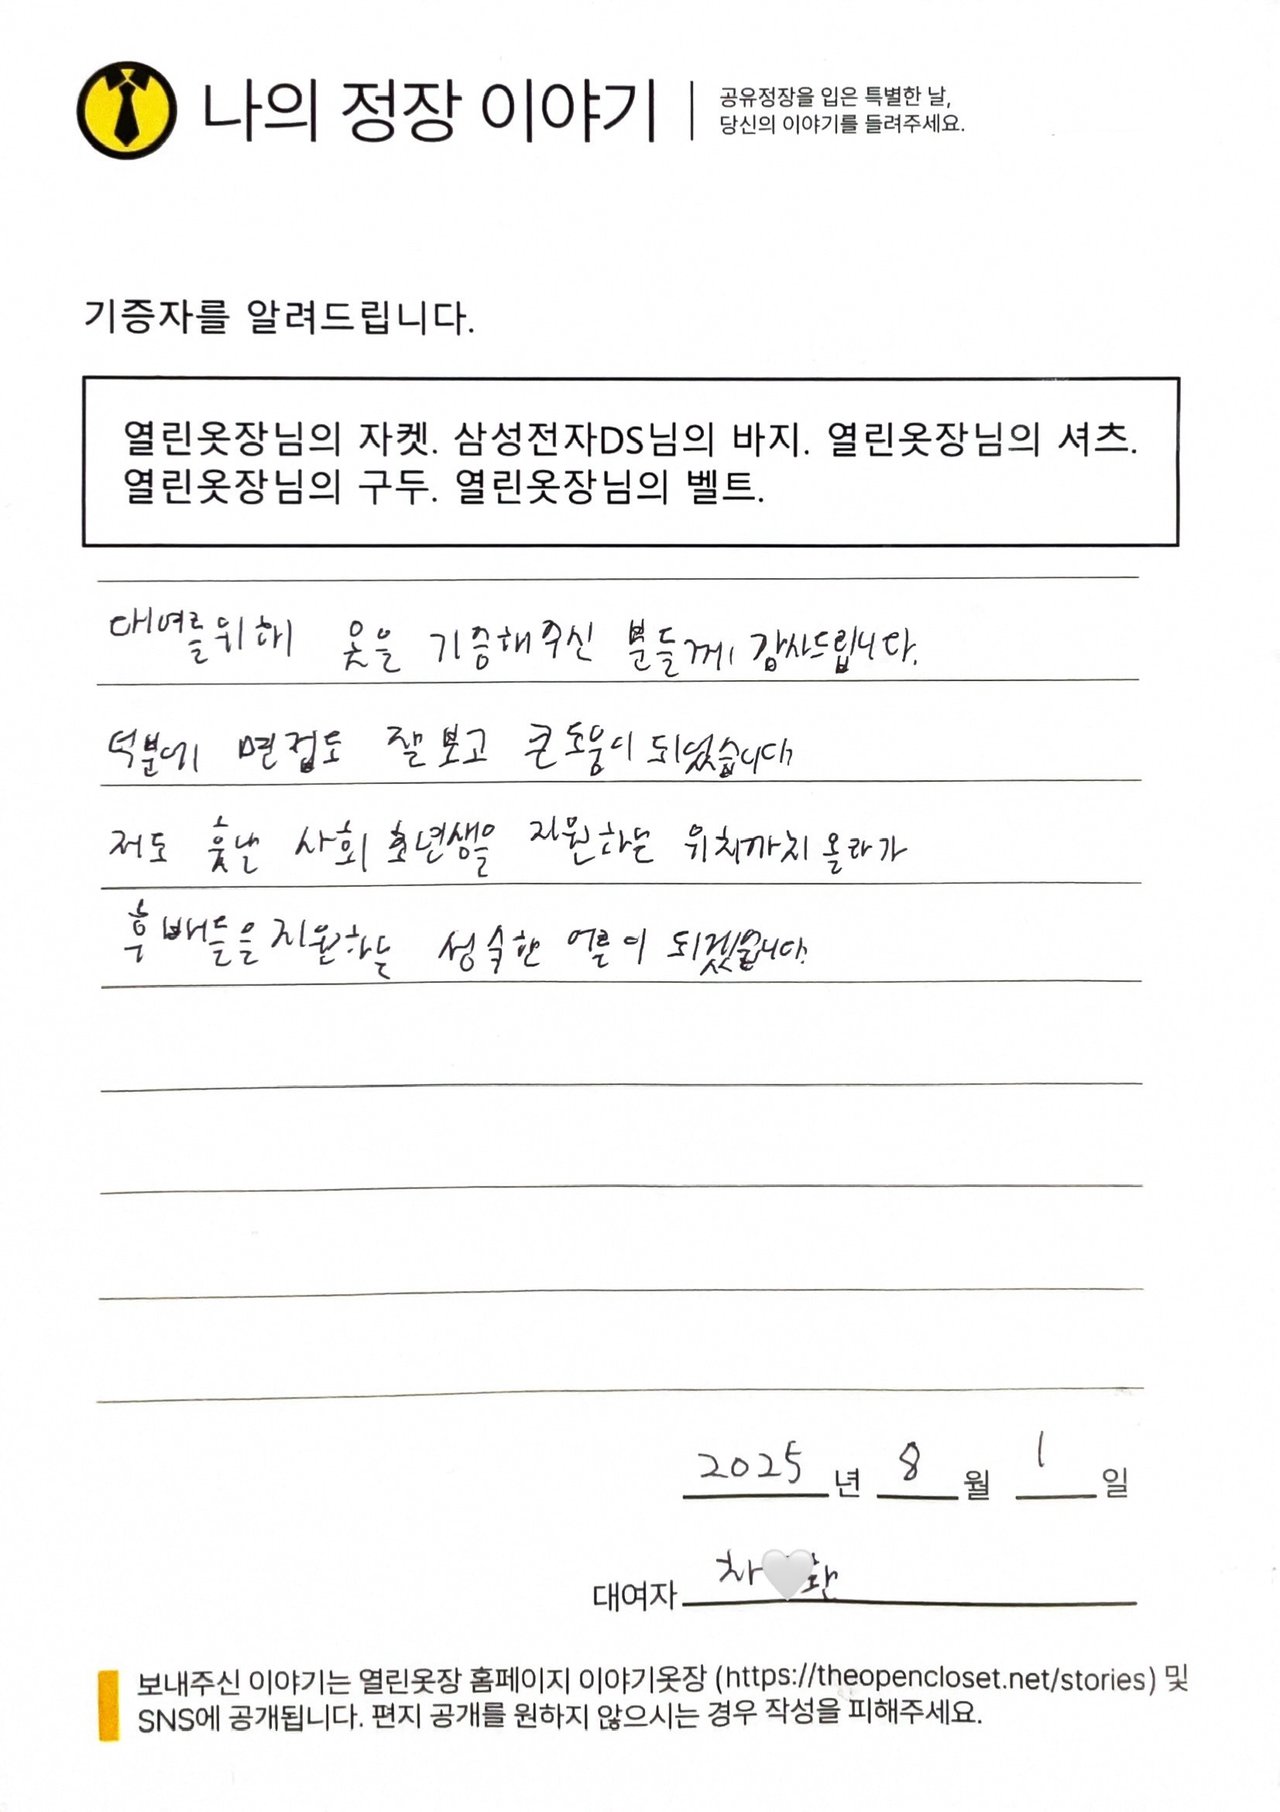 나의 정장 이야기
공유정장을 입은 특별한 날,
당신의 이야기를 들려주세요.
기증자를 알려드립니다.
열린옷장님의 자켓. 삼성전자DS님의 바지. 열린옷장님의 셔츠.
열린옷장님의 구두. 열린옷장님의 벨트.
대여를위해 옷을 기증해주신 분들께 감사드립니다.
덕분에 면접도 잘 보고 큰 도움이 되었습니다
저도 훗날 사회 초년생을 지원하는 위치까지 올라가
후배들을 지원하는 성숙한 어른이 되겠습니다.
2025 년 8 월 1 일
대여자 차 환
보내주신 이야기는 열린옷장 홈페이지 이야기옷장 (https://theopencloset.net/stories) 및
SNS에 공개됩니다. 편지 공개를 원하지 않으시는 경우 작성을 피해주세요.